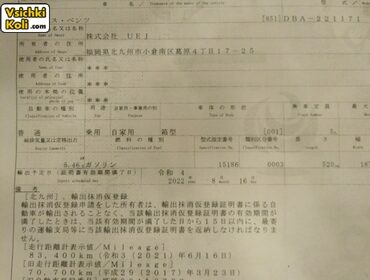 Vsichki
Koli.com
ス・ベンツ
Trademark of the maker of the vehicle
[851] DBA-221171
株式会社 ＵＥＪ
所有者の住所
福岡県北九州市小倉南区葛原４丁目１７－２５
使用者の氏名又は名称
＊＊＊
使用者の住所
＊＊＊
使用の本拠の位置
＊＊＊
自動車の種別
用途
自家用・事業用の別
車体の形状
乗車定員
最大
普通
乗用
自家用
箱型
[001]
5
総排気量又は定格出力
燃料の種類
型式指定番号
類別区分番号
長さ
幅
5.46 ガソリン
15186
0003
520
187
輸出予定日
(証明書有効期間満了日)
令和 4
2022
8
16
備考
[北九州], 輸出抹消仮登録
輸出抹消仮登録申請をした所有者は、輸出抹消仮登録証明書に係る自
動車が輸出されることなく、当該輸出抹消仮登録証明書の有効期間が
満了したときは、当該有効期間が満了した日から15日以内に、最寄
りの運輸支局等に当該輸出抹消仮登録証明書を返納しなければなりま
せん。
[走行距離計表示値／Mileage]
83,400km (令和3(2021)年6月16日)
[旧走行距離計表示値／Mileage]
70,700km (平成29(2017)年3月23日)